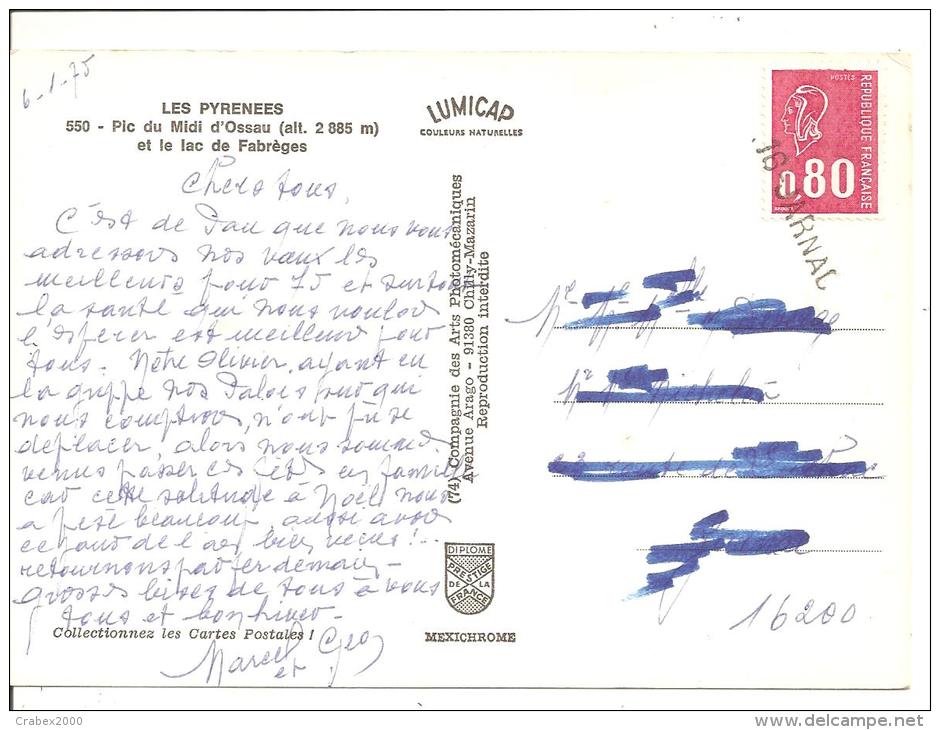 6-1-75
LES PYRENEES
550 - Pic du Midi d'Ossau (alt. 2 885 m)
et le lac de Fabrèges
LUMICAP
COULEURS NATURELLES
POSTES
REPUBLIQUE FRANÇAISE
0.80
16 JARNAC
Chers tous,
C'est de Pau que nous vous
adressons nos vœux les
meilleurs pour 75 et surtout
la santé qui nous voulons
l'espérer est meilleure pour
tous. Notre Olivier, ayant eu
la grippe nos Palois sur qui
nous comptions, n'ont pu se
déplacer, alors nous sommes
venus passer ces fêtes en famille
car cette solitude à Noël nous
a pesé beaucoup, aussi avons
retournons par fer demain -
grosses bises de tous à vous
tous et bon hiver -
Marcel et
(74) Compagnie des Arts Photomécaniques
Avenue Arago - 91380 Chilly-Mazarin
Reproduction interdite
DIPLOME
PRESTIGE
DE LA
FRANCE
MEXICHROME
Collectionnez les Cartes Postales !
16200
Crabex2000
www.delcampe.net